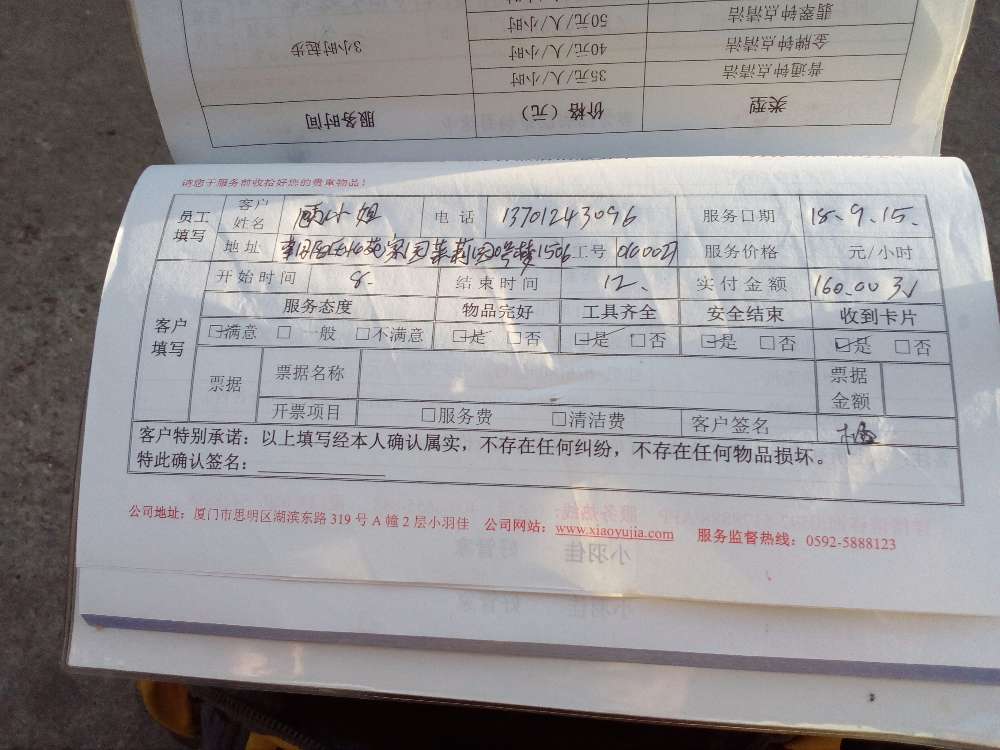 翡翠钟点清洁 50元/人/小时
金牌钟点清洁 40元/人/小时 3小时起步
普通钟点清洁 35元/人/小时
类型 价格（元） 服务时间
请您于服务前收拾好您的贵重物品！
员工填写 客户姓名 顾小姐 电话 13701243096 服务日期 18.9.15.
地址 1506 工号 服务价格 元/小时
客户填写 开始时间 8. 结束时间 12. 实付金额 160.00
服务态度 物品完好 工具齐全 安全结束 收到卡片
☑满意 □一般 □不满意 ☑是 □否 ☑是 □否 ☑是 □否 ☑是 □否
票据 票据名称 票据金额
开票项目 □服务费 □清洁费 客户签名
客户特别承诺：以上填写经本人确认属实，不存在任何纠纷，不存在任何物品损坏。
特此确认签名：
公司地址：厦门市思明区湖滨东路 319 号 A 幢 2 层小羽佳 公司网站：www.xiaoyujia.com 服务监督热线：0592-5888123